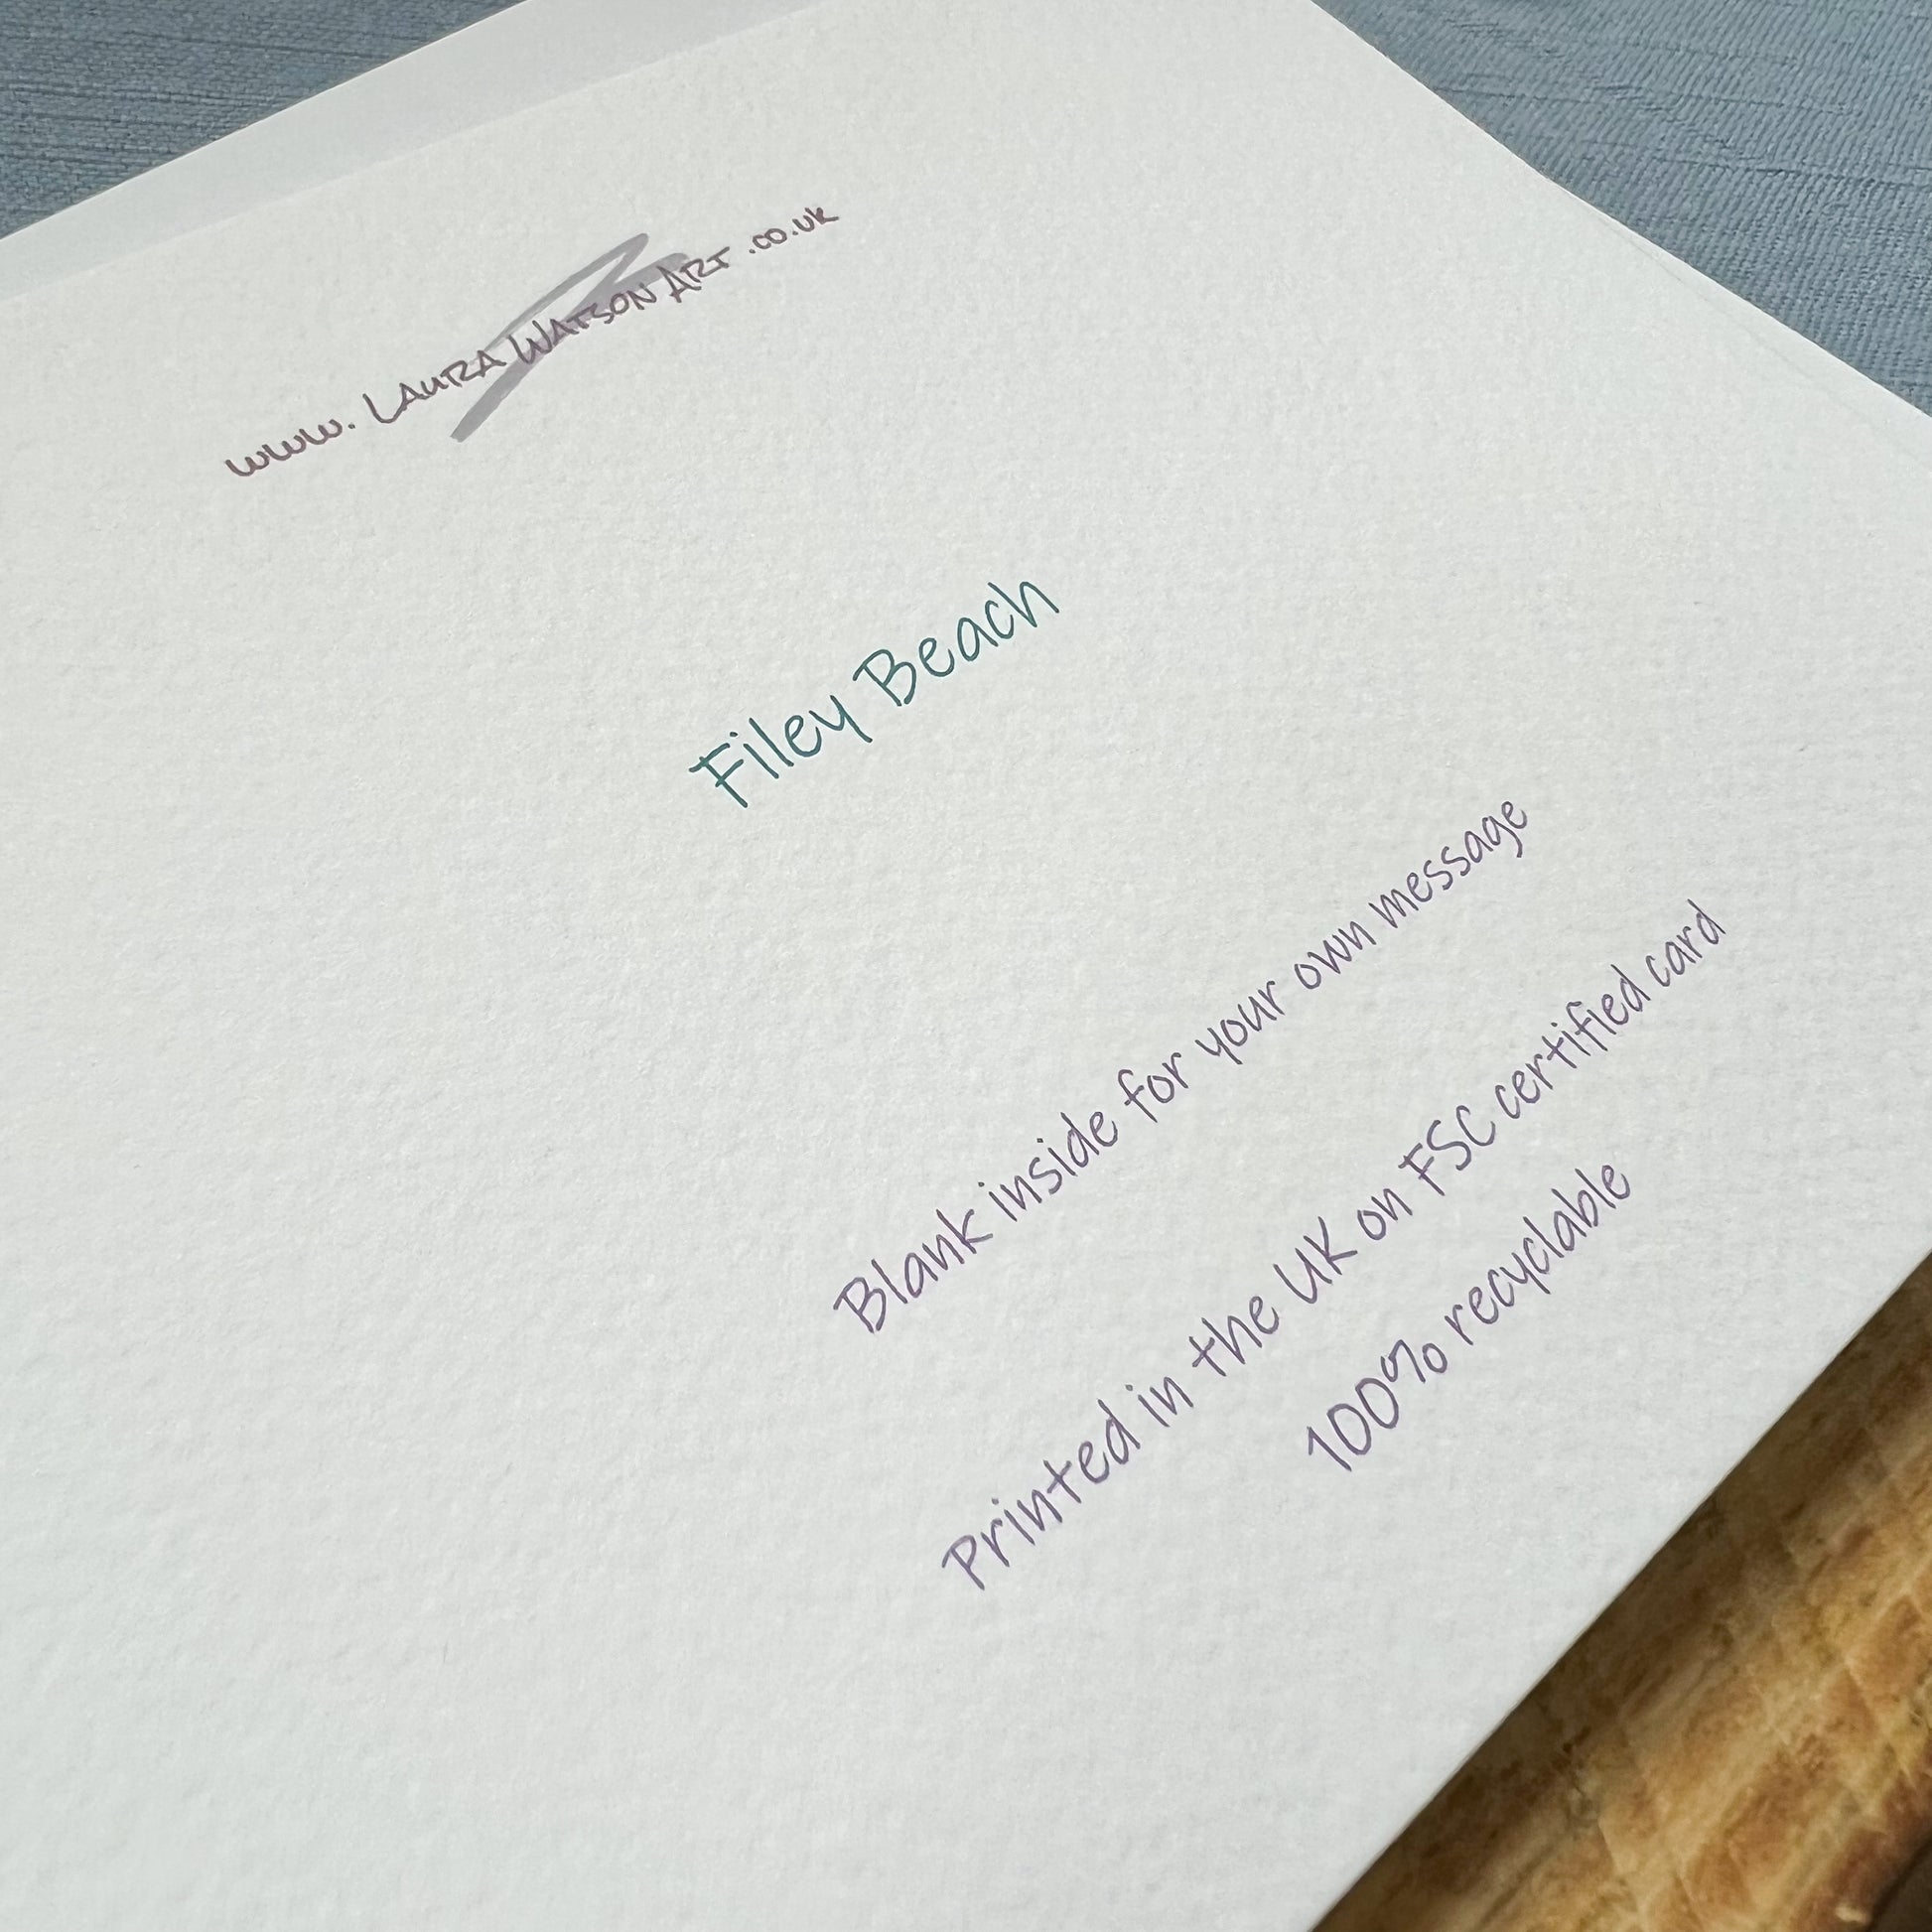 www. Laura Watson Art .co.uk
Filey Beach
Blank inside for your own message
Printed in the UK on FSC certified card
100% recyclable